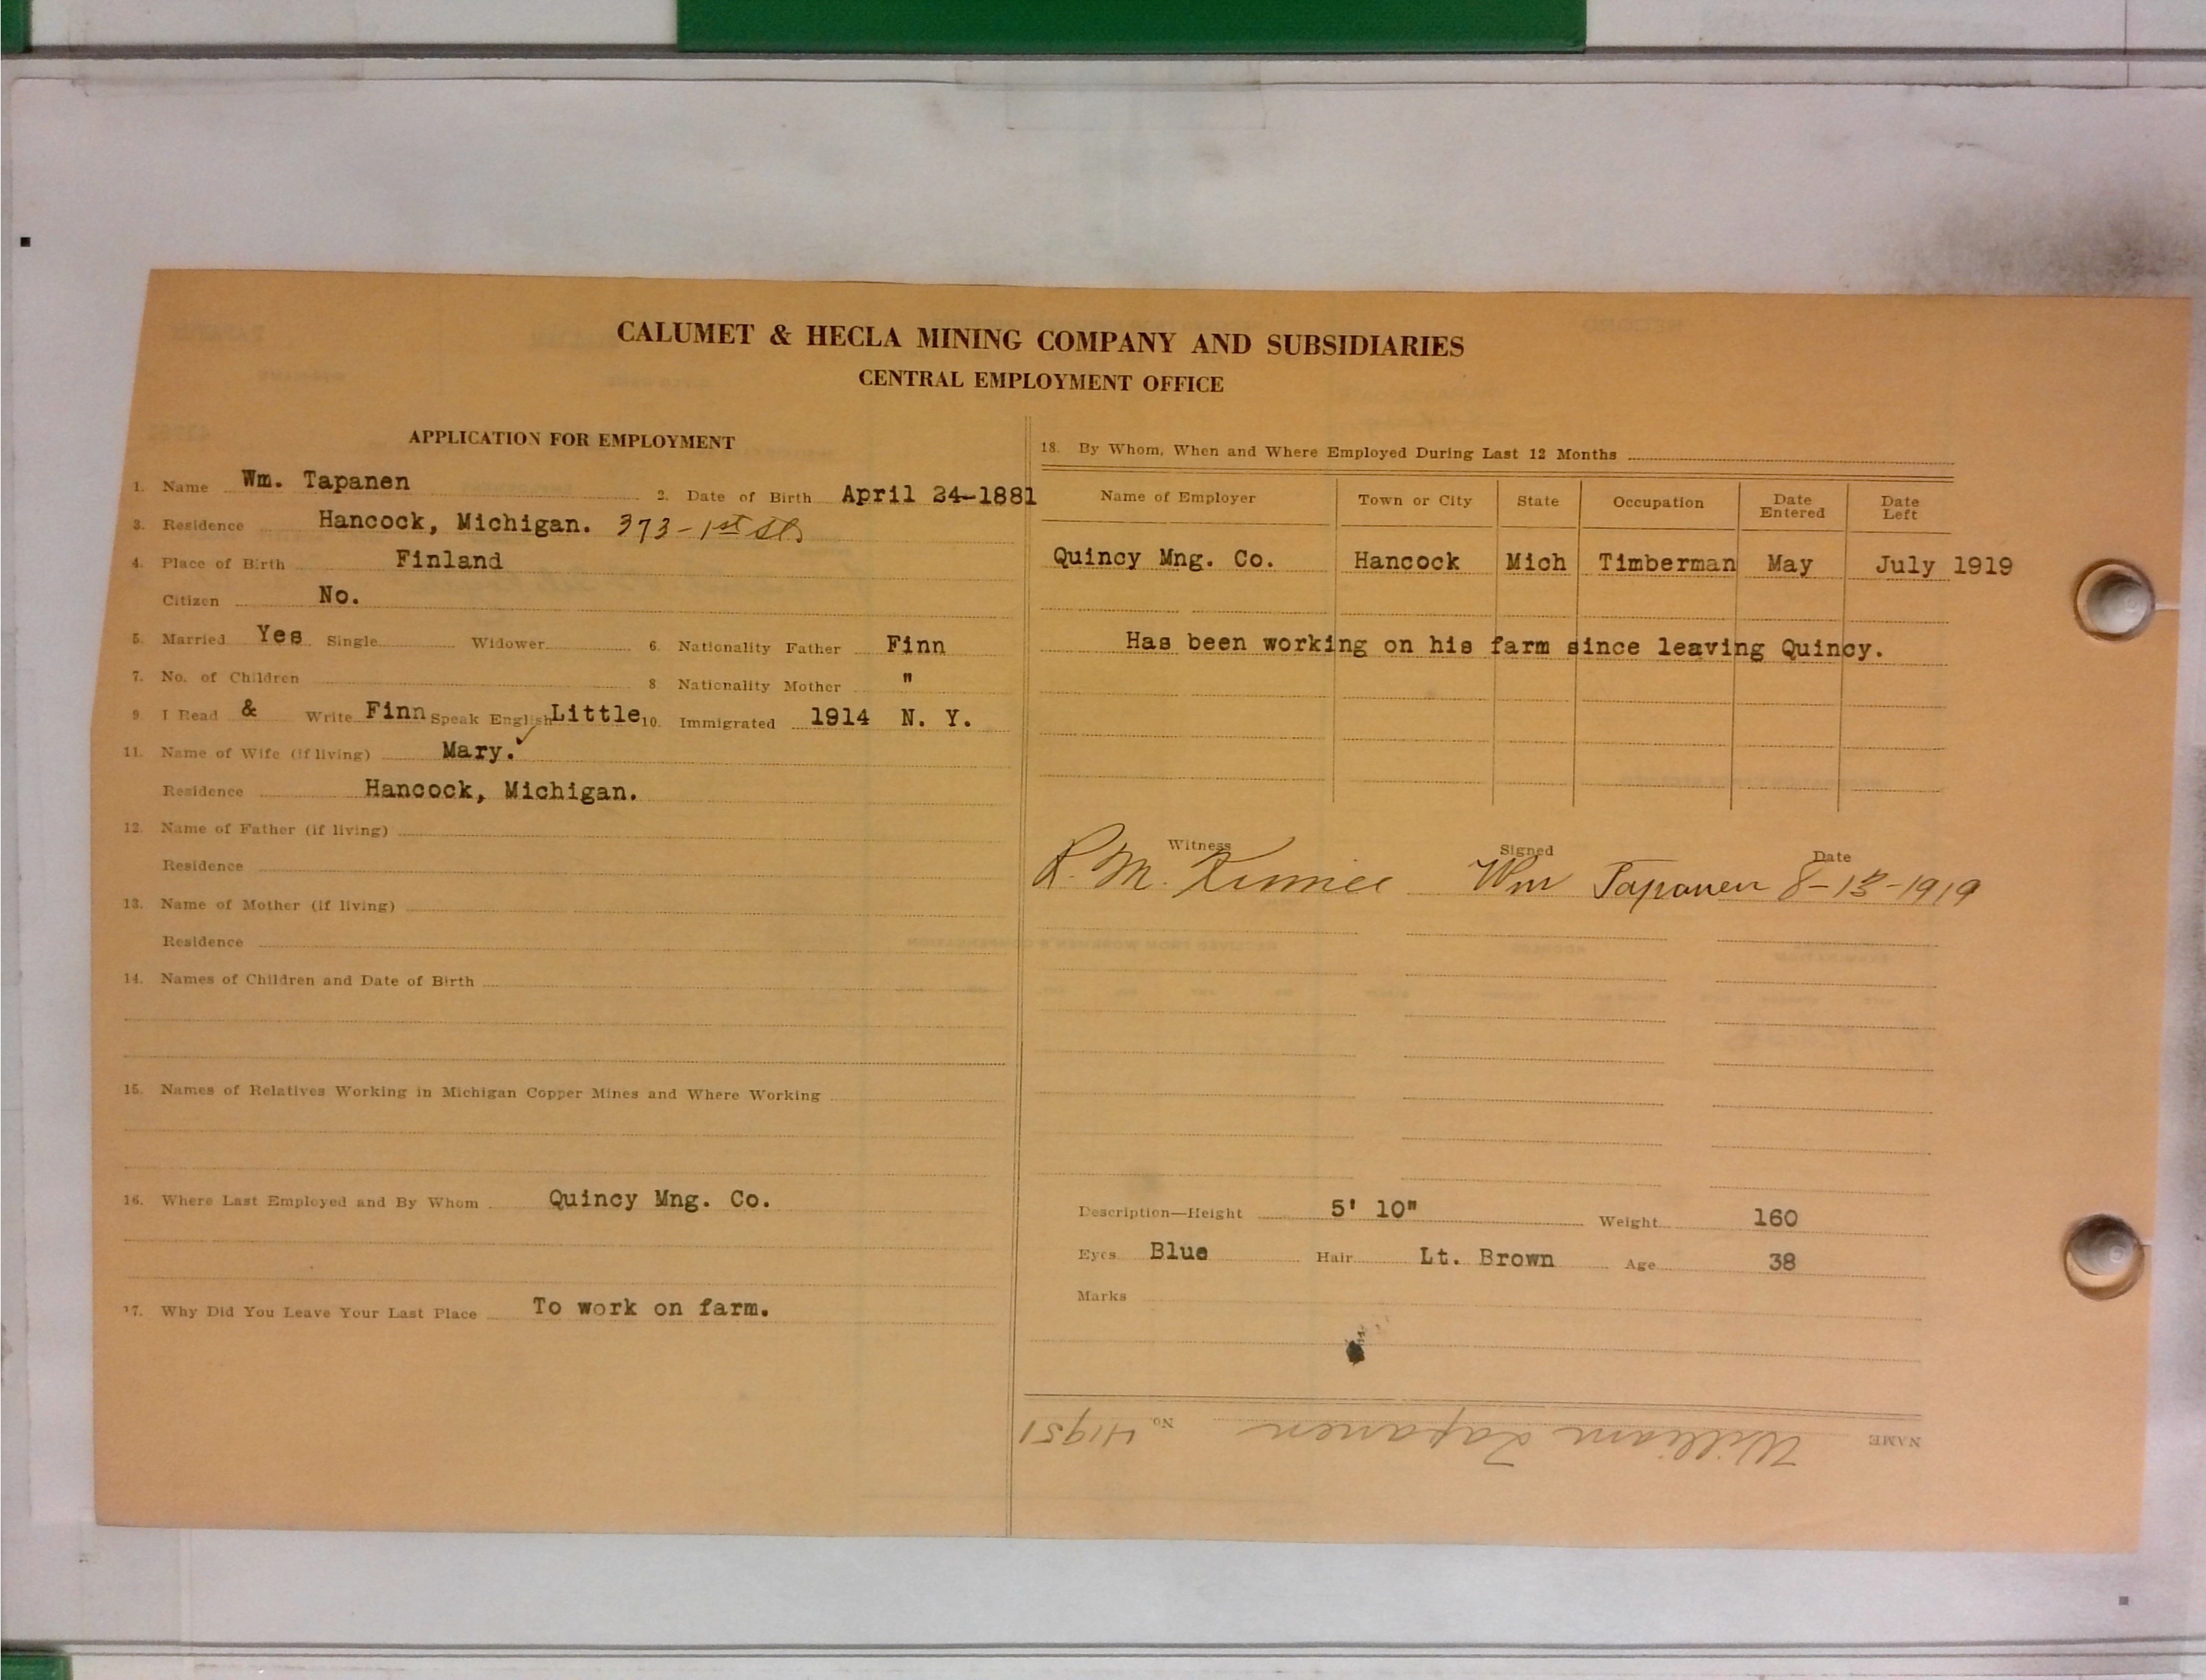 CALUMET & HECLA MINING COMPANY AND SUBSIDIARIES
CENTRAL EMPLOYMENT OFFICE
APPLICATION FOR EMPLOYMENT
1. Name Wm. Tapanen 2. Date of Birth April 24-1881
3. Residence Hancock, Michigan. 373-1st St
4. Place of Birth Finland
Citizen No.
5. Married Yes Single Widower 6. Nationality Father Finn
7. No. of Children 8 Nationality Mother "
9. I Read & Write Finn Speak English Little 10. Immigrated 1914 N. Y.
11. Name of Wife (if living) Mary.
Residence Hancock, Michigan.
12. Name of Father (if living)
Residence
13. Name of Mother (if living)
Residence
14. Names of Children and Date of Birth
15. Names of Relatives Working in Michigan Copper Mines and Where Working
16. Where Last Employed and By Whom Quincy Mng. Co.
17. Why Did You Leave Your Last Place To work on farm.
18. By Whom, When and Where Employed During Last 12 Months
Name of Employer Town or City State Occupation Date Entered Date Left
Quincy Mng. Co. Hancock Mich Timberman May July 1919
Has been working on his farm since leaving Quincy.
Witness Signed Date
R. M. Wm Tapanen 8-13-1919
Description—Height 5' 10" Weight 160
Eyes Blue Hair Lt. Brown Age 38
Marks
NAME William Tapanen No. 41951